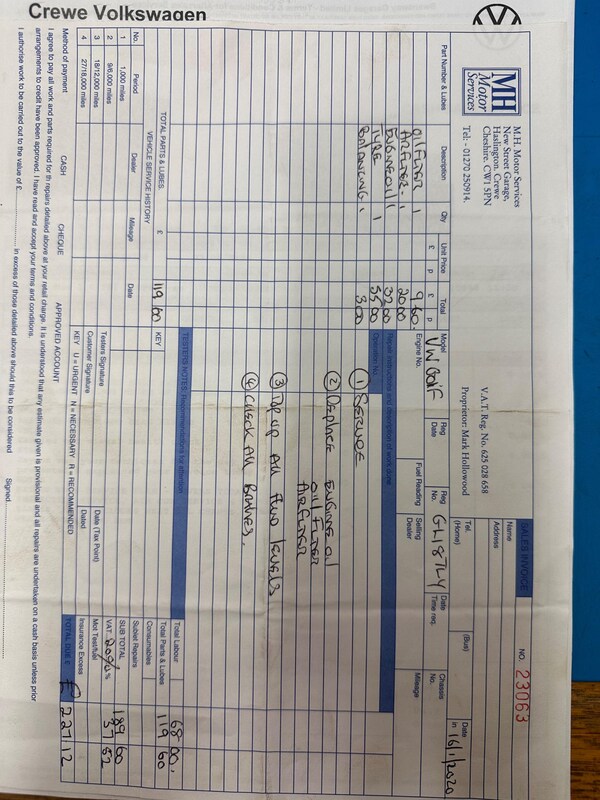 Crewe Volkswagen
MH
Motor
Services
M.H. Motor Services
New Street Garage,
Haslington. Crewe
Cheshire. CW1 5PN
Tel: - 01270 250914.
V.A.T. Reg. No. 625 028 658
Proprietor: Mark Hollowood
SALES INVOICE
NO. 23063
Name
Address
Tel. (Home)
(Bus)
Date in 16/1/2020
Model VW Golf
Reg Date
Reg No. GL18TLY
Date
Time req.
Chassis No.
Engine No.
Fuel Reading
Selling Dealer
Mileage
Part Number & Lubes
Description
Qty
Unit Price
£ p
Total
£ p
OIL FILTER 1 9 60
AIR FILTER 1 20 00
ENGINE OIL 1 32 00
TYRE 1 55 00
BALANCING 1 3 00
TOTAL PARTS & LUBES £ 119 60
Repair instructions and description of work done
Operation No.
① SERVICE
② REPLACE ENGINE OIL
OIL FILTER
AIR FILTER
③ TOP UP ALL FLUID LEVELS
④ CHECK ALL BRAKES.
TESTERS NOTES: Recommendations for attention
VEHICLE SERVICE HISTORY
No. Period Dealer Mileage Date
1 1,000 miles
2 9/6,000 miles
3 18/12,000 miles
4 27/18,000 miles
KEY
Testers Signature
Customer Signature
Date (Tax Point)
Dated
KEY U = URGENT N = NECESSARY R = RECOMMENDED
Total Labour 68 00
Total Parts & Lubes 119 60
Consumables
Sublet Repairs
SUB TOTAL 189 60
VAT 20% % 37 52
Mot Test/fuel
Insurance Excess
TOTAL DUE £ £ 227/12
Method of payment CASH CHEQUE APPROVED ACCOUNT
I agree to pay all work and parts required for th repairs detailed above at your retail charge. It is understood that any estimate given is provisional and all repairs are undertaken on a cash basis unless prior
arrangements to credit have been approved. I have read and accept your terms and conditions.
I authorise work to be carried out to the value of £ in excess of those detailed above should this to be considered Signed